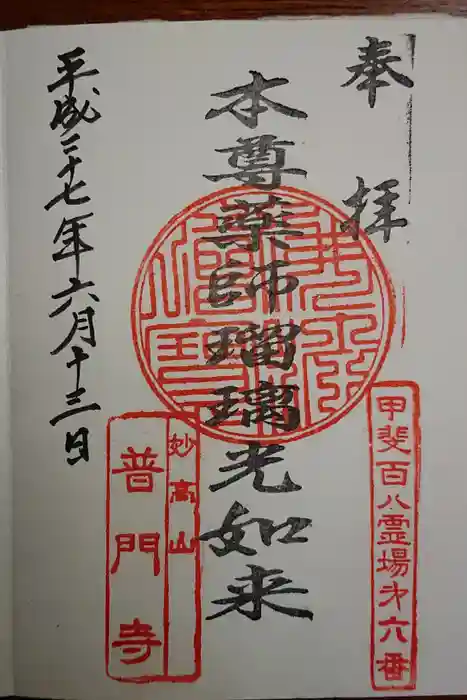 奉拝
甲斐百八霊場第六番
本尊薬師瑠璃光如来
妙高山
普門寺
平成二十七年六月十三日